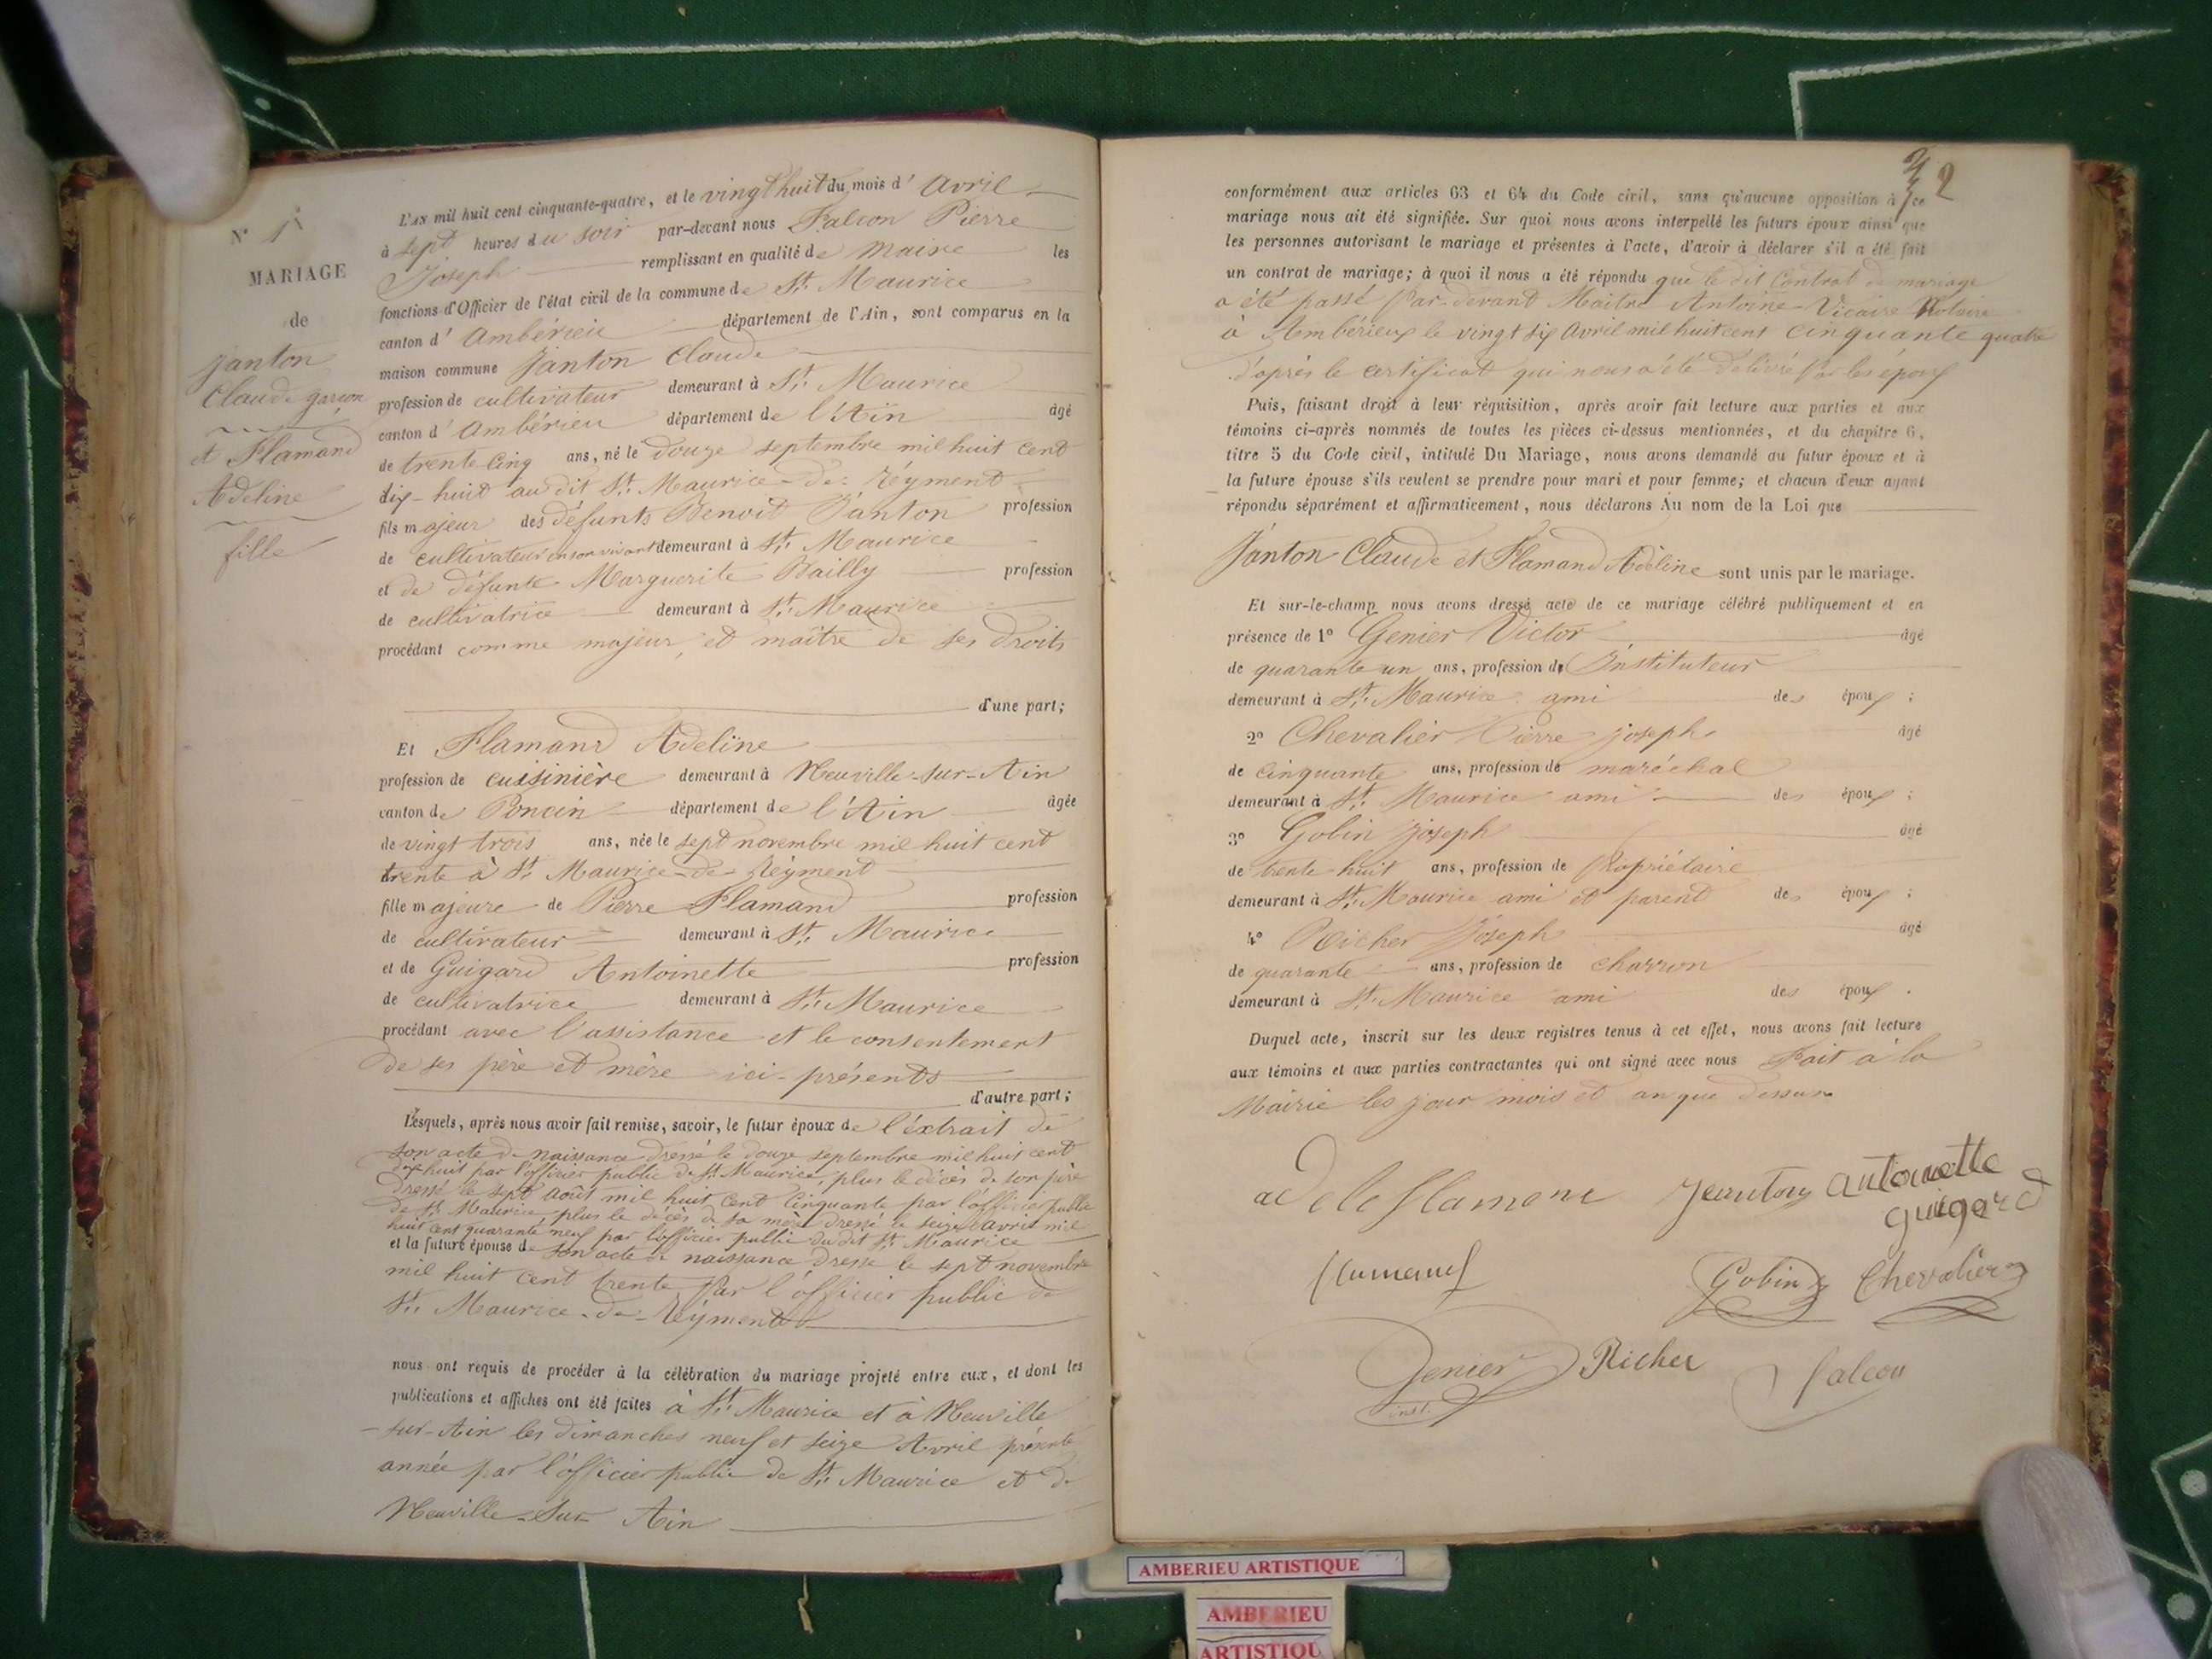 N° 1
MARIAGE
de
Janton
Claude garçon
et Flamand
Adeline
fille
L'AN mil huit cent cinquante-quatre, et le vingt huit du mois d'Avril
à sept heures du soir par-devant nous Falcon Pierre
Joseph remplissant en qualité de Maire les
fonctions d'Officier de l'état civil de la commune de St. Maurice
canton d'Ambérieu département de l'Ain, sont comparus en la
maison commune Janton Claude
profession de cultivateur demeurant à St. Maurice
canton d'Ambérieu département de l'Ain âgé
de trente cinq ans, né le douze septembre mil huit cent
dix-huit au dit St. Maurice-de-Réyment
fils majeur des défunts Benoit Janton profession
de cultivateur en son vivant demeurant à St. Maurice
et de défunte Marguerite Bailly profession
de cultivatrice demeurant à St. Maurice
procédant comme majeur, et maître de ses droits
d'une part;
Et Flamand Adeline
profession de cuisinière demeurant à Neuville-sur-Ain
canton de Poncin département de l'Ain âgée
de vingt trois ans, née le sept novembre mil huit cent
trente à St. Maurice-de-Réyment
fille majeure de Pierre Flamand profession
de cultivateur demeurant à St. Maurice
et de Guigard Antoinette profession
de cultivatrice demeurant à St. Maurice
procédant avec l'assistance et le consentement
de ses père et mère ici-présents
d'autre part;
Lesquels, après nous avoir fait remise, savoir, le futur époux de l'éxtrait de
son acte de naissance dressé le douze septembre mil huit cent
dix huit par l'officier public de St. Maurice, plus le décès de son père
dressé le sept Août mil huit cent cinquante par l'officier public
de St. Maurice plus le décès de sa mère dressé le seize avril mil
huit cent quarante neuf par l'officier public du dit St. Maurice
et la future épouse de son acte de naissance dressé le sept novembre
mil huit cent trente par l'officier public de
St. Maurice-de-Réyment
nous ont requis de procéder à la célébration du mariage projeté entre eux, et dont les
publications et affiches ont été faites à St. Maurice et à Neuville
-sur-Ain les dimanches neuf et seize Avril présente
année par l'officier public de St. Maurice et de
Neuville-Sur-Ain
2
conformément aux articles 63 et 64 du Code civil, sans qu'aucune opposition à ce
mariage nous ait été signifiée. Sur quoi nous avons interpellé les futurs époux ainsi que
les personnes autorisant le mariage et présentes à l'acte, d'avoir à déclarer s'il a été fait
un contrat de mariage; à quoi il nous a été répondu que le dit Contrat de mariage
a été passé par-devant Maître Antoine-Vicaire Notaire
à Ambérieux le vingt six Avril mil huit cent cinquante quatre
d'après le certificat qui nous a été délivré par les époux
Puis, faisant droit à leur réquisition, après avoir fait lecture aux parties et aux
témoins ci-après nommés de toutes les pièces ci-dessus mentionnées, et du chapitre 6,
titre 5 du Code civil, intitulé Du Mariage, nous avons demandé au futur époux et à
la future épouse s'ils veulent se prendre pour mari et pour femme; et chacun d'eux ayant
répondu séparément et affirmativement, nous déclarons Au nom de la Loi que
Janton Claude et Flamand Adéline sont unis par le mariage.
Et sur-le-champ nous avons dressé acte de ce mariage célébré publiquement et en
présence de 1° Genier Victor âgé
de quarante un ans, profession de Instituteur
demeurant à St. Maurice ami des époux;
2° Chevalier Pierre joseph âgé
de cinquante ans, profession de maréchal
demeurant à St. Maurice ami des époux;
3° Gobin joseph âgé
de trente huit ans, profession de Propriétaire
demeurant à St. Maurice ami et parent des époux;
4° Richer Joseph âgé
de quarante ans, profession de charron
demeurant à St. Maurice ami des époux.
Duquel acte, inscrit sur les deux registres tenus à cet effet, nous avons fait lecture
aux témoins et aux parties contractantes qui ont signé avec nous Fait à la
Mairie les jour mois et an que dessus
antoinette
guigard
Gobin Chevalier
Genier Richer falcon
inst.
AMBERIEU ARTISTIQUE
AMBERIEU
ARTISTIQU